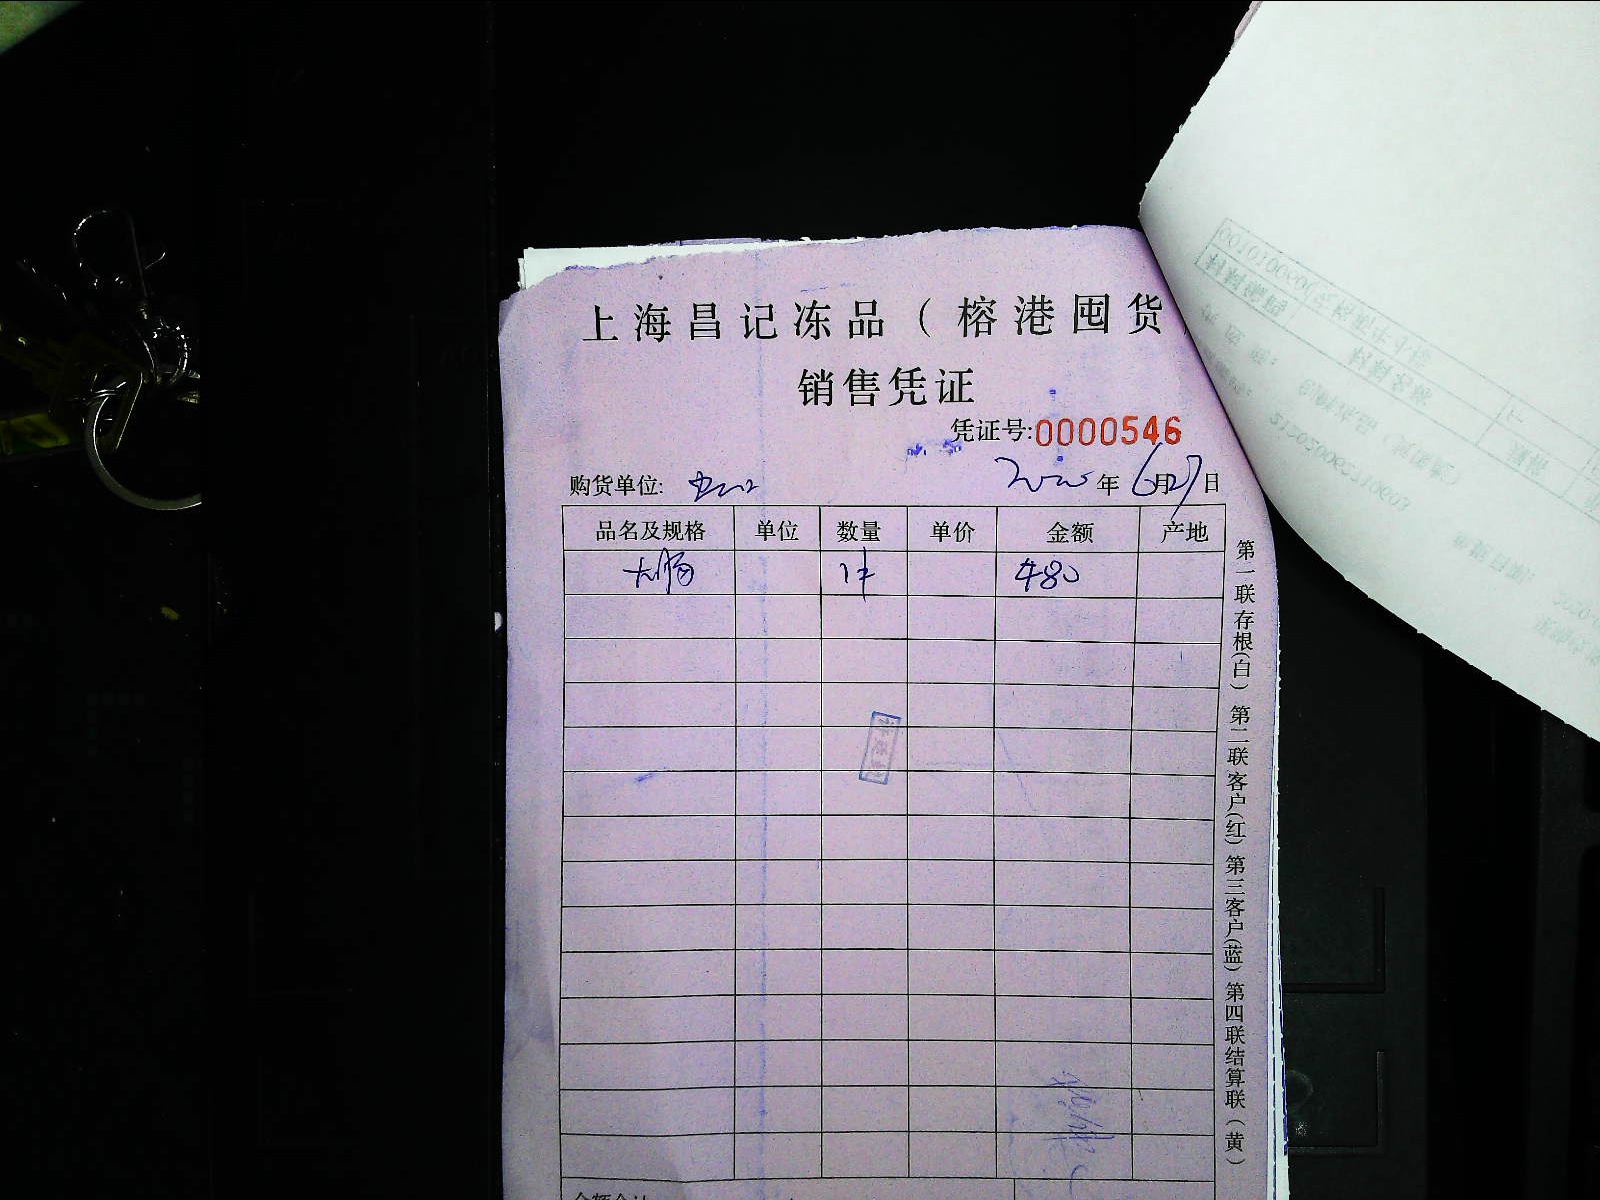 上海昌记冻品（榕港囤货
销售凭证
凭证号:0000546
购货单位:
2020年6月27日
品名及规格 单位 数量 单价 金额 产地
大肠 1件 480
第一联存根(白) 第二联客户(红) 第三客户(蓝) 第四联结算联(黄)